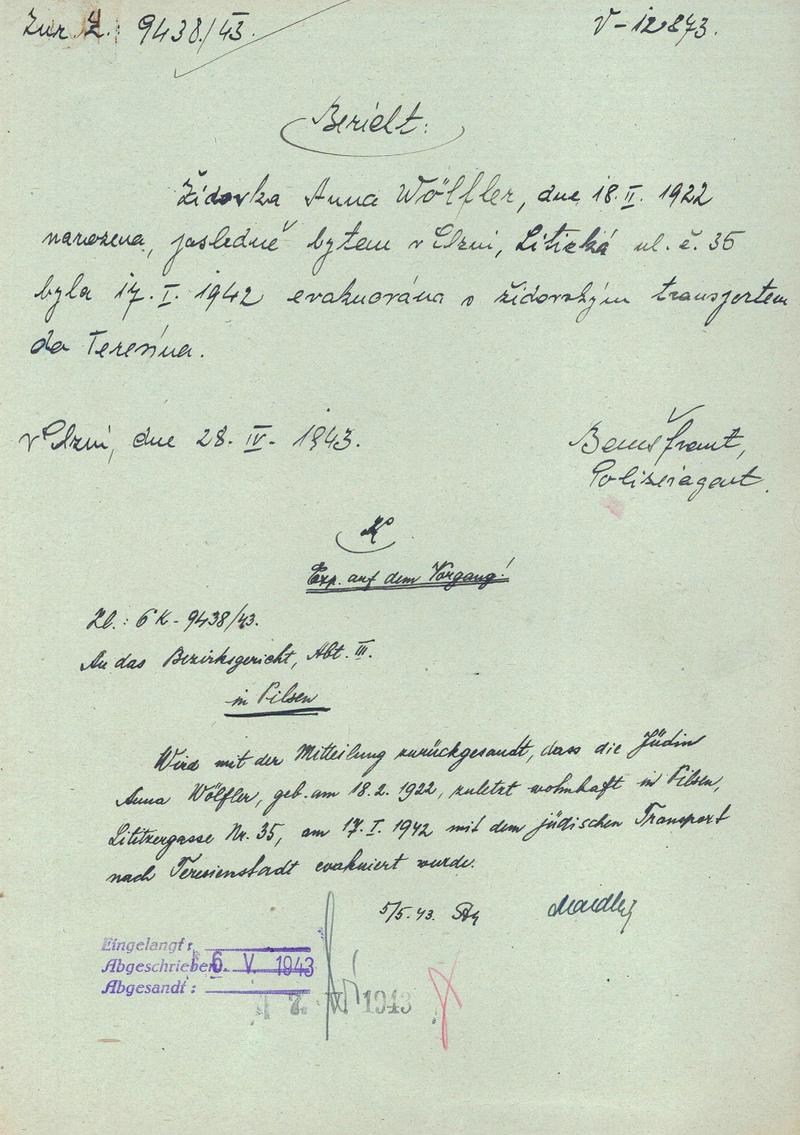 Zur Z.: 9438/43.
V-12873.
Bericht:
Židovka Anna Wölfler, dne 18.II. 1922
narozena, posledně bytem v Plzni, Litická ul. č. 35
byla 17.I. 1942 evakuována s židovským transportem
do Terezína.
v Plzni, dne 28.IV. 1943.
Polizeiagent.
K
Exp. auf dem Vorgang!
Zl.: 6K-9438/43.
An das Bezirksgericht, Abt. III.
in Pilsen
Wird mit der Mitteilung zurückgesandt, dass die Jüdin
Anna Wölfler, geb. am 18.2. 1922, zuletzt wohnhaft in Pilsen,
Lititzergasse Nr. 35, am 17.I. 1942 mit dem jüdischen Transport
nach Teresienstadt evakuiert wurde.
5/5.43.
Eingelangt:
Abgeschrieben: 6. V. 1943
Abgesandt:
7. 1943